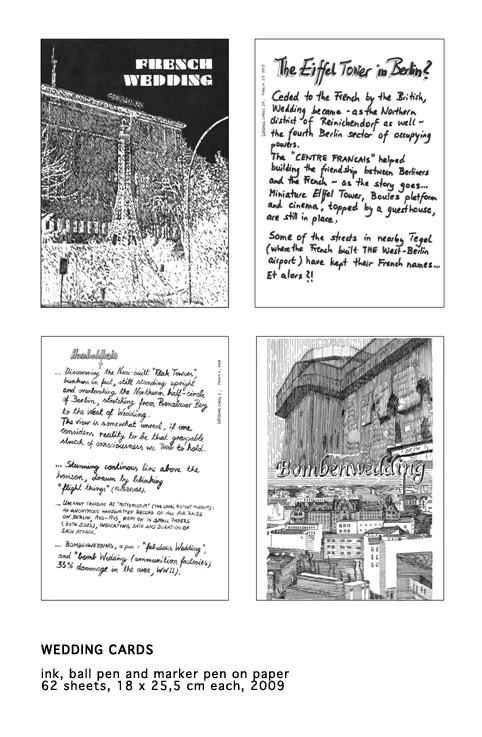 FRENCH
WEDDING
The Eiffel Tower in Berlin?
Ceded to the French by the British,
Wedding became - as the Northern
district of Reinickendorf as well -
the fourth Berlin sector of occupying
powers.
The "CENTRE FRANCAIS" helped
building the friendship between Berliners
and the French - as the story goes...
Miniature Eiffel Tower, Boules platform
and cinema, topped by a guesthouse,
are still in place.
Some of the streets in nearby Tegel
(where the French built THE West-Berlin
airport) have kept their French names...
Et alors ?!
Humboldthain
... Discovering the Nazi-built "Flak Towers",
bunkers in fact, still standing upright
and overlooking the Northern half-circle
of Berlin, stretching from Prenzlauer Berg
to the West of Wedding.
The view is somewhat unreal, if one
considers reality to be that graspable
stretch of consciousness we tune to hold.
... Stunning continous line above the
horizon, drawn by blinking
"flight things"
UNIQUE TREASURE AT "MITTEMUSEUM" (THE LOCAL HISTORY MUSEUM):
AN ANONYMOUS HANDWRITTEN RECORD OF ALL AIR RAIDS
ON BERLIN, 1940-1945, KEPT ON 12 SMALL PAPERS
(BOTH SIDES), INDICATING DATE AND DURATION OF
EACH ATTACK.
... BOMBENWEDDING, a pun : "fabulous Wedding",
and "bomb Wedding (ammunition factories;
35% dammage in the area, WW II).
Bombenwedding
WEDDING CARDS
ink, ball pen and marker pen on paper
62 sheets, 18 x 25,5 cm each, 2009